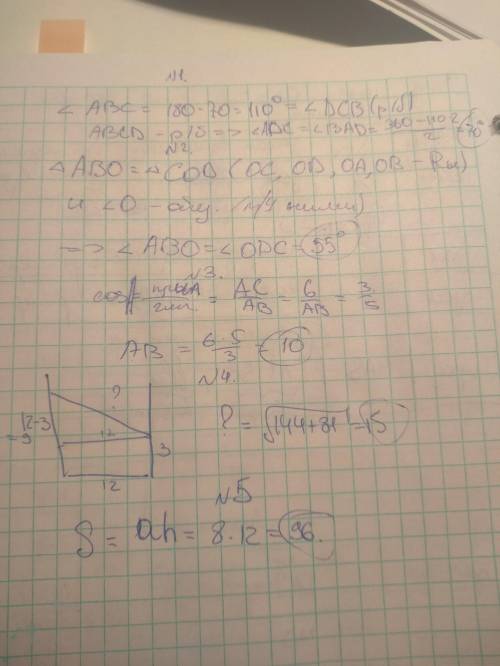 №1.
∠ABC = 180-70 = 110° = ∠DCB (р/б)
ABCD - р/б => ∠ADC = ∠BAD = 360-110·2/2 = 70°
№2
△ABO = △COD (OC, OD, OA, OB - Rы)
и ∠O - общ.
=> ∠ABO = ∠ODC = 55°
№3.
cos A = прилА/гип. = AC/AB = 6/AB = 3/5
AB = 6·5/3 = 10
№4.
?
12-3
= 9
12
3
12
? = √144+81 = 15
№5
S = ah = 8·12 = 96.